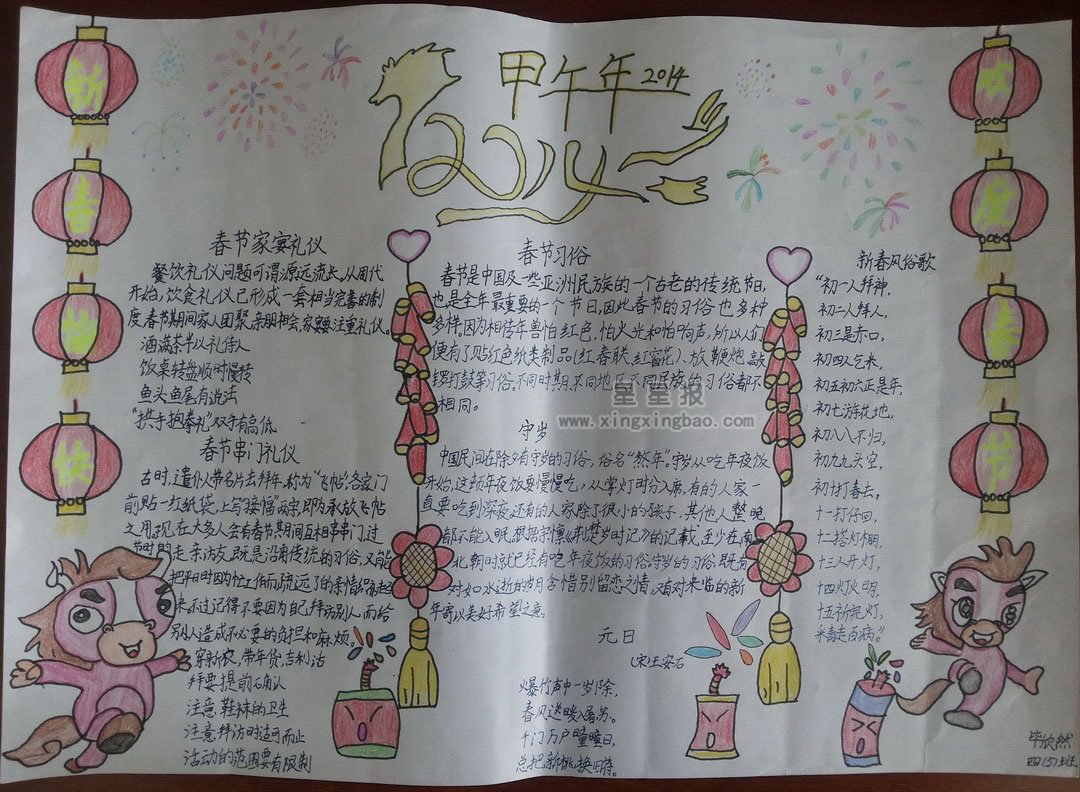 甲午年 2014
新
春
愉
快
欢
度
春
节
春节家宴礼仪
餐饮礼仪问题可谓源远流长,从周代
开始,饮食礼仪已形成一套相当完善的制
度,春节期间家人团聚,亲朋相会,家宴要注重礼仪。
酒满茶半以礼待人
饭桌转盘顺时慢转
鱼头鱼尾有说法
“拱手抱拳礼”双手有高低
春节串门礼仪
古时,遣仆人带名片去拜年,称为“飞帖”,各家门
前贴一红纸袋,上写“接福”两字,即为承放飞帖
之用,现在大多人会有春节期间互相串串门,过
节时间走亲访友,既是沿有传统的习俗,又能
把平时因为忙工作而疏远了的亲情
来,不过记得不要因为自己拜访别人而给
别人造成不必要的负担和麻烦。
穿新衣,带年货,吉利话
拜要提前确认
注意鞋袜的卫生
注意拜访时适可而止
活动的范围要有限制
春节习俗
春节是中国及一些亚洲民族的一个古老的传统节日,
也是全年最重要的一个节日,因此春节的习俗也多种
多样,因为相传年兽怕红色,怕火光和怕响声,所以人们
便有了贴红色纸类制品(红春联、红窗花)、放鞭炮、敲
锣打鼓等习俗,不同时期、不同地区、不同民族的习俗都不
相同。
星星报
www.xingxingbao.com
守岁
中国民间在除夕有守岁的习俗,俗名“熬年”。守岁从吃年夜饭
开始,这顿年夜饭要慢慢吃,从掌灯时分入席,有的人家一
直要吃到深夜,还有的人家除了很小的孩子,其他人整晚
都不能入眠,根据宗懔《荆楚岁时记》的记载,至少在南
北朝时就已经有吃年夜饭的习俗,守岁的习俗,既有
对如水逝的岁月含惜别留恋之情,又有对来临的新
年寄以美好希望之意。
元日
(宋)王安石
爆竹声中一岁除,
春风送暖入屠苏。
千门万户曈曈日,
总把新桃换旧符。
新春风俗歌
“初一人拜神,
初二人拜人,
初三是赤口,
初四人乞米,
初五初六正是年,
初七游花地,
初八八不归,
初九九头空,
初十打春去,
十一打仔回,
十二搭灯棚,
十三人开灯,
十四灯火明,
十五祈完灯,
来毒走百病。”
毕欣然
四(5)班